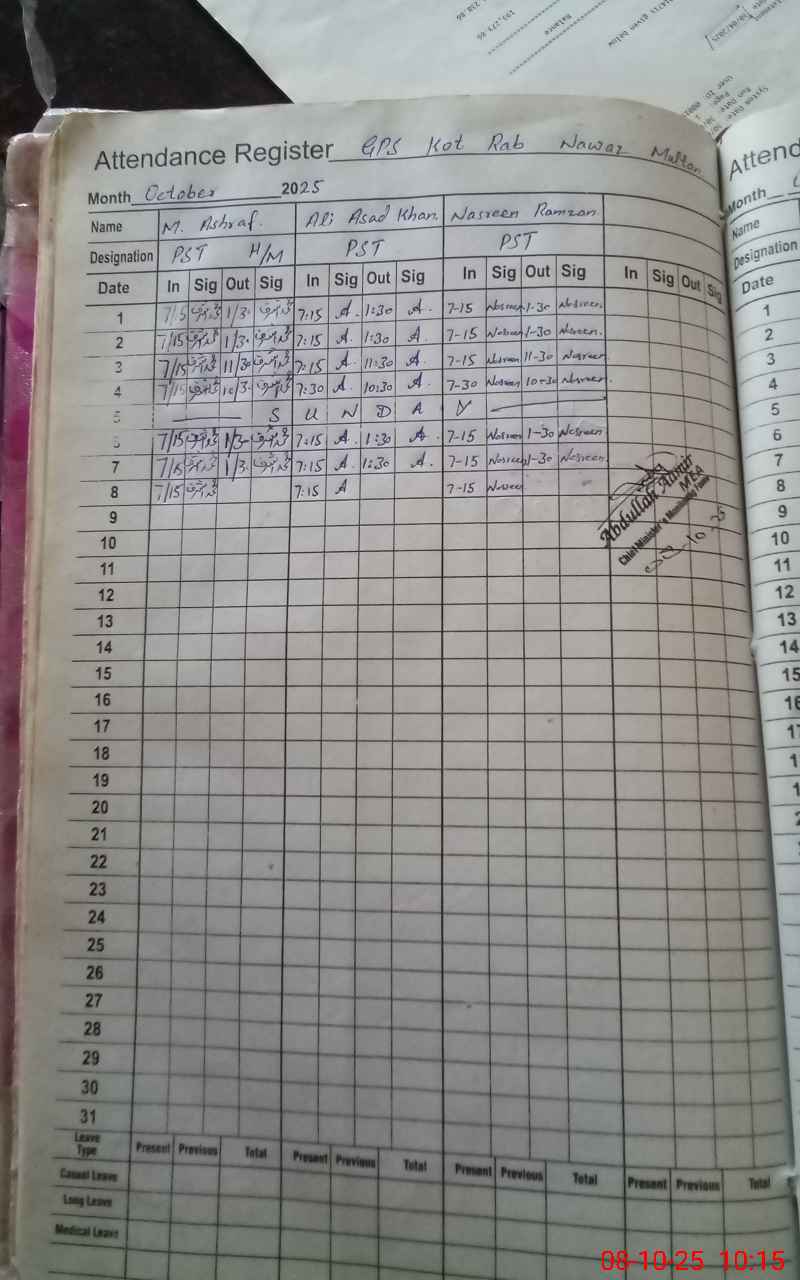 Attendance Register GPS Kot Rab Nawaz Multan
Month October 2025
Name M. Ashraf. Ali Asad Khan. Nasreen Ramzan.
Designation PST H/M PST PST
Date In Sig Out Sig In Sig Out Sig In Sig Out Sig In Sig Out Sig
1 7/15 محمد اشرف 1/30 محمد اشرف 7:15 A. 1:30 A. 7-15 Nasreen 1-30 Nasreen.
2 7/15 محمد اشرف 1/30 محمد اشرف 7:15 A. 1:30 A. 7-15 Nasreen 1-30 Nasreen.
3 7/15 محمد اشرف 11/30 محمد اشرف 7:15 A 11:30 A. 7-15 Nasreen 11-30 Nasreen.
4 7/15 محمد اشرف 10/30 محمد اشرف 7:30 A. 10:30 A. 7-30 Nasreen 10-30 Nasreen.
5 S U N D A Y
6 7/15 محمد اشرف 1/30 محمد اشرف 7:15 A. 1:30 A. 7-15 Nasreen 1-30 Nasreen
7 7/15 محمد اشرف 1/30 محمد اشرف 7:15 A. 1:30 A. 7-15 Nasreen 1-30 Nasreen.
8 7/15 محمد اشرف 7:15 A 7-15 Nasreen
Abdullah Aamir
MEA
Chief Minister's Monitoring Force
9
10
11
12
13
14
15
16
17
18
19
20
21
22
23
24
25
26
27
28
29
30
31
Leave Type Present Previous Total Present Previous Total Present Previous Total Present Previous Total
Casual Leave
Long Leave
Medical Leave
Attend
Month
Name
Designation
Date
1
2
3
4
5
6
7
8
9
10
11
12
13
14
15
16
Balance
193,273.66
given below
08-10-25 10:15